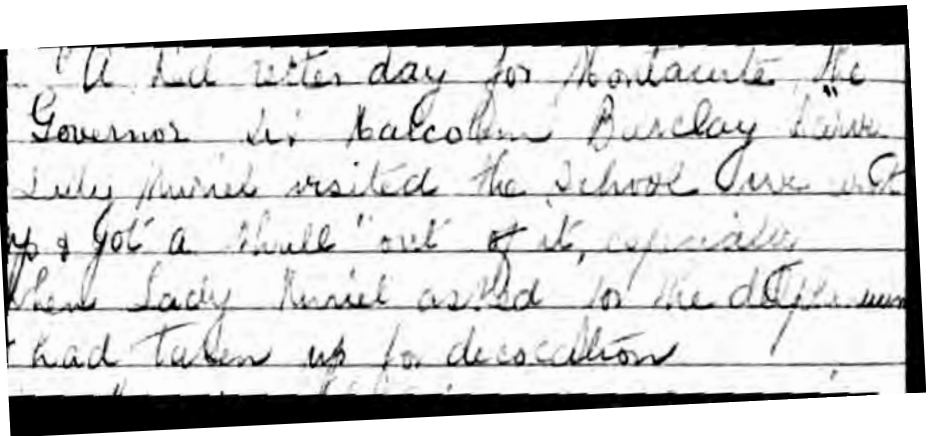 A red letter day for Montacute. The
Governor Sir Malcolm Barclay Harvey
Lady Muriel visited the School I was
up & got a thrill "out of it, especially
when Lady Muriel asked for the
I had taken up for decoration